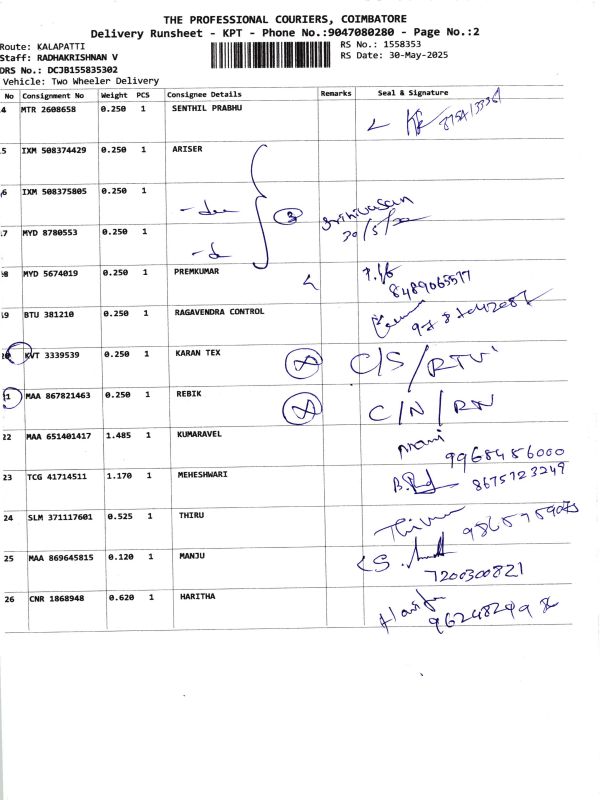 THE PROFESSIONAL COURIERS, COIMBATORE
Delivery Runsheet - KPT - Phone No.:9047080280 - Page No.:2
Route: KALAPATTI
RS No.: 1558353
Staff: RADHAKRISHNAN V
RS Date: 30-May-2025
DRS No.: DCJB155835302
Vehicle: Two Wheeler Delivery
No Consignment No Weight PCS Consignee Details Remarks Seal & Signature
4 MTR 2608658 0.250 1 SENTHIL PRABHU
5 IXM 508374429 0.250 1 ARISER
6 IXM 508375805 0.250 1
3 Srinivasan
30/5/
7 MYD 8780553 0.250 1
8 MYD 5674019 0.250 1 PREMKUMAR
8489065517
19 BTU 381210 0.250 1 RAGAVENDRA CONTROL
KVT 3339539 0.250 1 KARAN TEX C/S/RTV
21 MAA 867821463 0.250 1 REBIK C/N/RN
22 MAA 651401417 1.485 1 KUMARAVEL
9968456000
23 TCG 41714511 1.170 1 MEHESHWARI
8675723249
24 SLM 371117601 0.525 1 THIRU
25 MAA 869645815 0.120 1 MANJU
7200300821
26 CNR 1868948 0.620 1 HARITHA